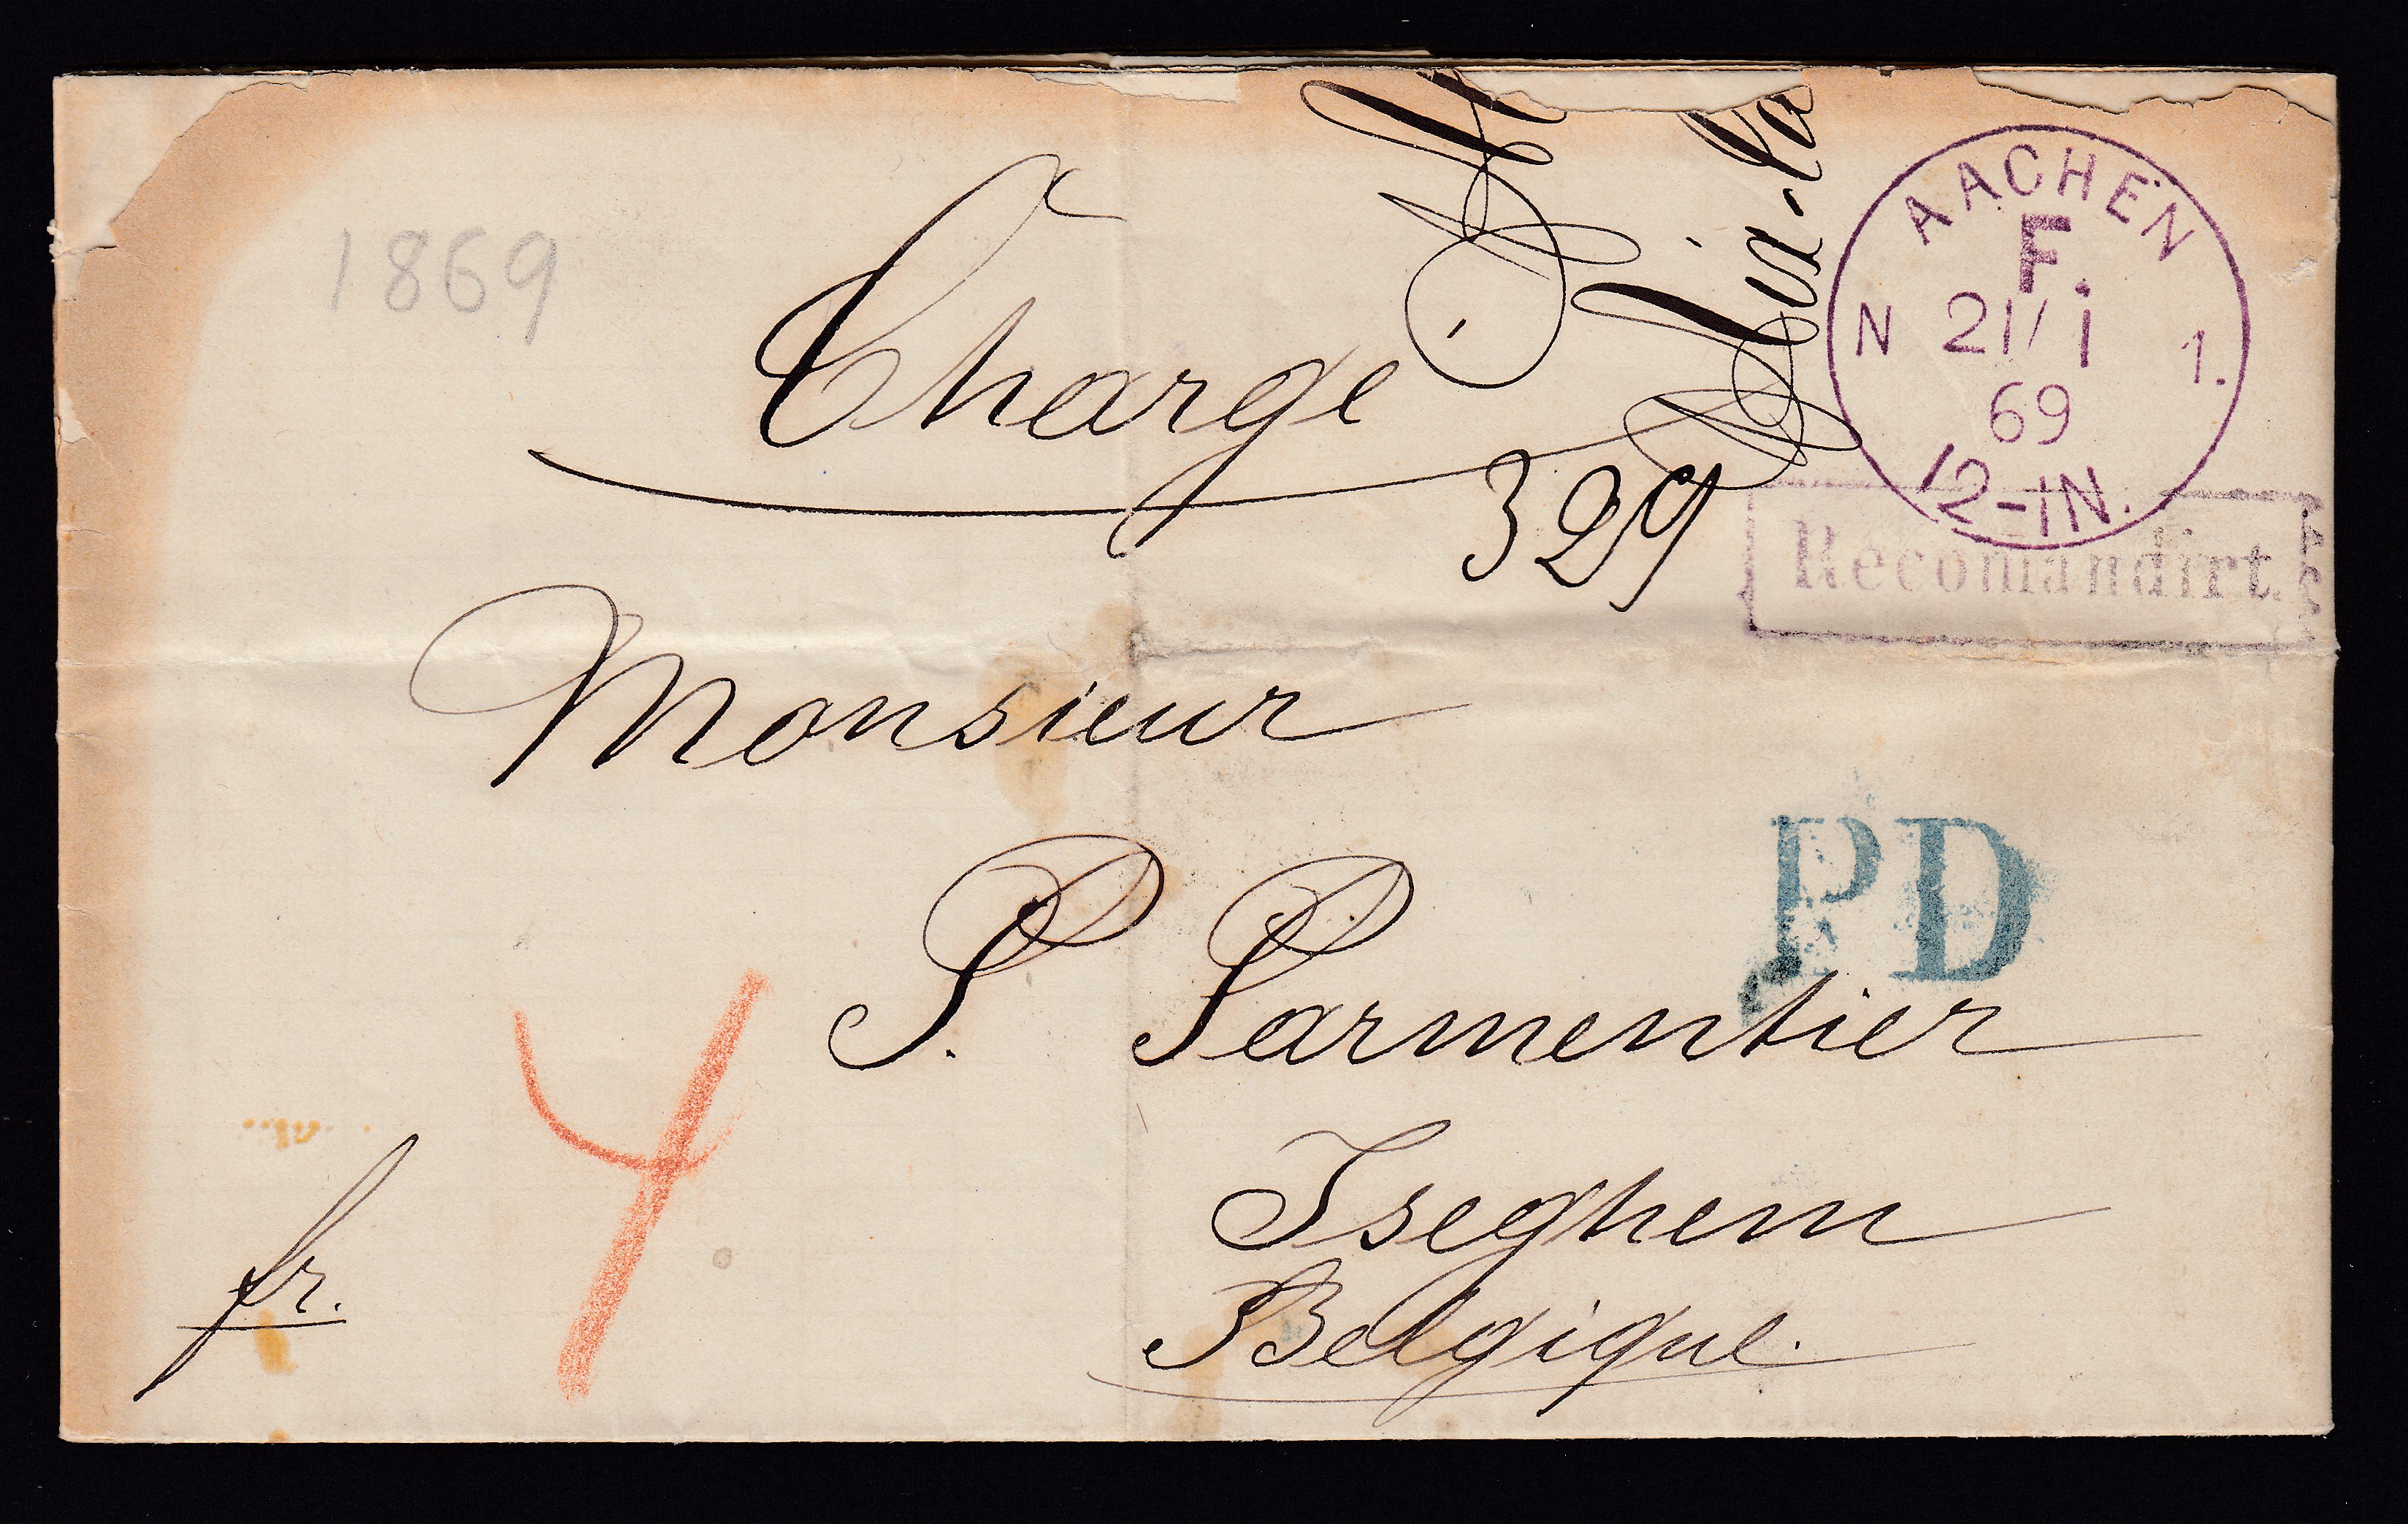 1869
Chargé
329
AACHEN
F.
N 21/1 1.
69
12-1N.
Recomandirt.
Monsieur
PD
P. Parmentier
Iseghem
Belgique.
4
fr.